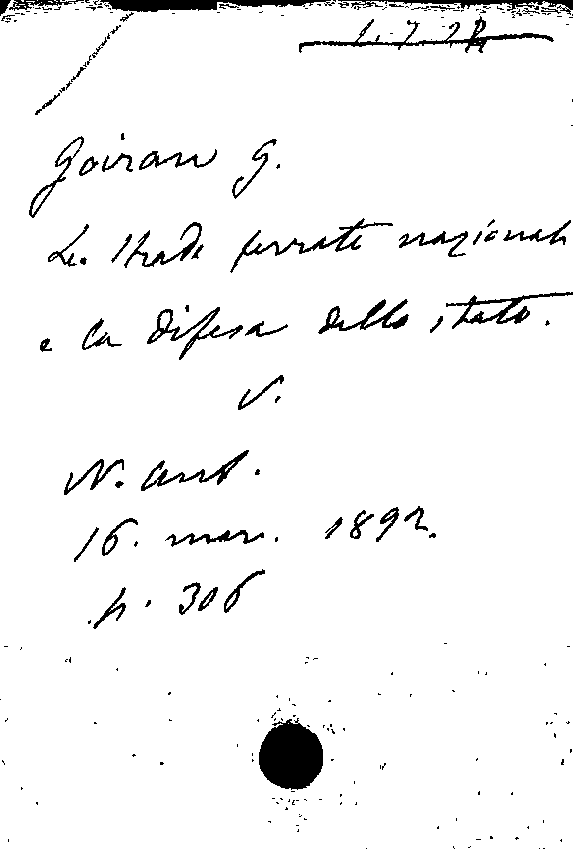 Goiran G.
Le strade ferrate nazionali
e la difesa dello stato.
V.
N. Ant.
16. mar. 1892.
p. 306